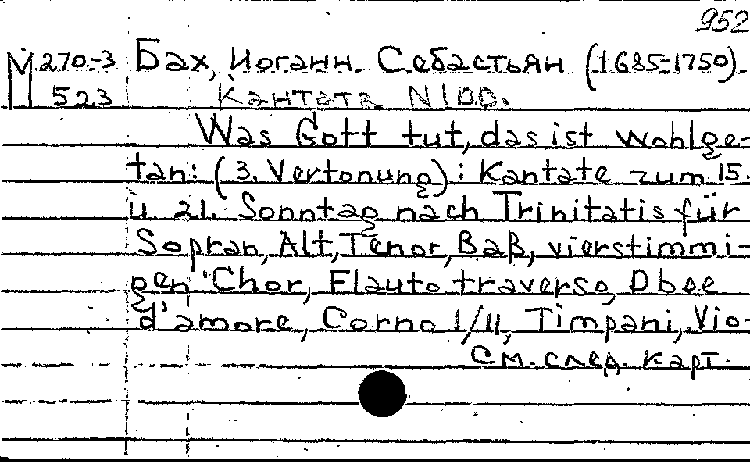 952
М 270-3 Бах, Иоганн Себастьян (1685-1750).
523 Кантата N100.
Was Gott tut, das ist wohlge-
tan: (3. Vertonung): Kantate zum 15.
u. 21. Sonntag nach Trinitatis für
Sopran, Alt, Tenor, Baß, vierstimmi-
gen Chor, Flauto traverso, Oboe
d'amore, Corno I/II, Timpani, Vio-
См. след. карт.